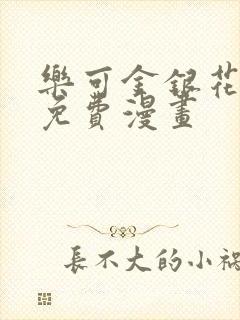 樂可金銀花
免費漫畫
長不大的小禍